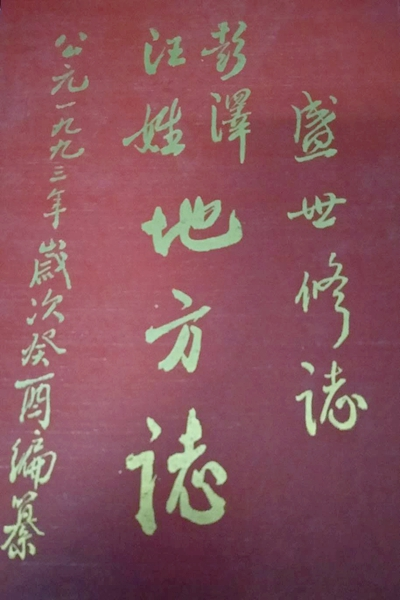 盛世修誌
彭澤
汪姓
地方誌
公元一九九三年歲次癸酉編纂